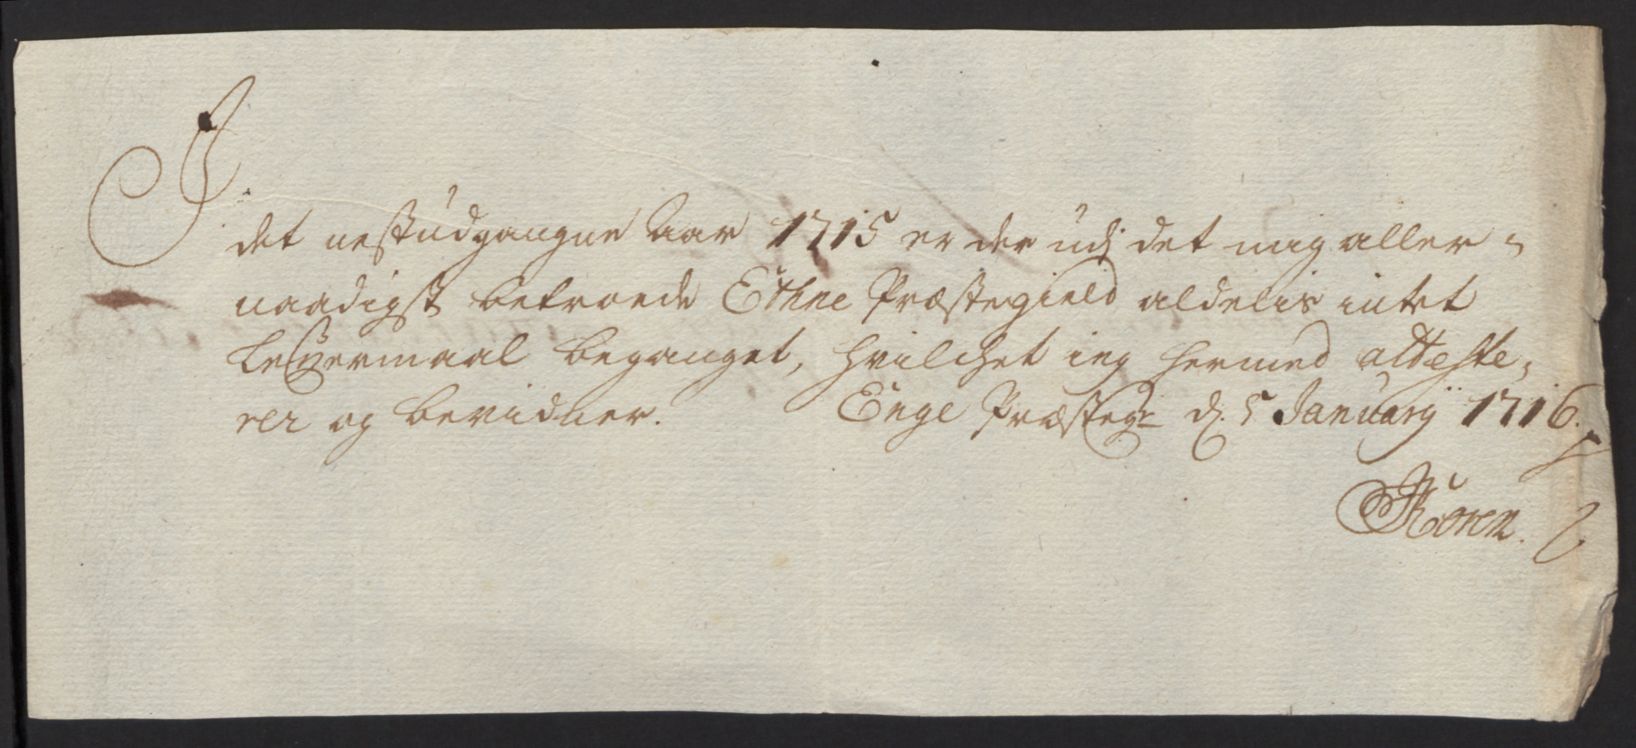 I
det nest udgangne Aar 1715 er der udj det mig aller-
naadigst betroede Ethne Præstegield aldelis intet
Leÿermaal beganget, hvilchet ieg hermed atteste-
rer og bevidner. Enge Præstegr d. 5 January 1716.
Koren